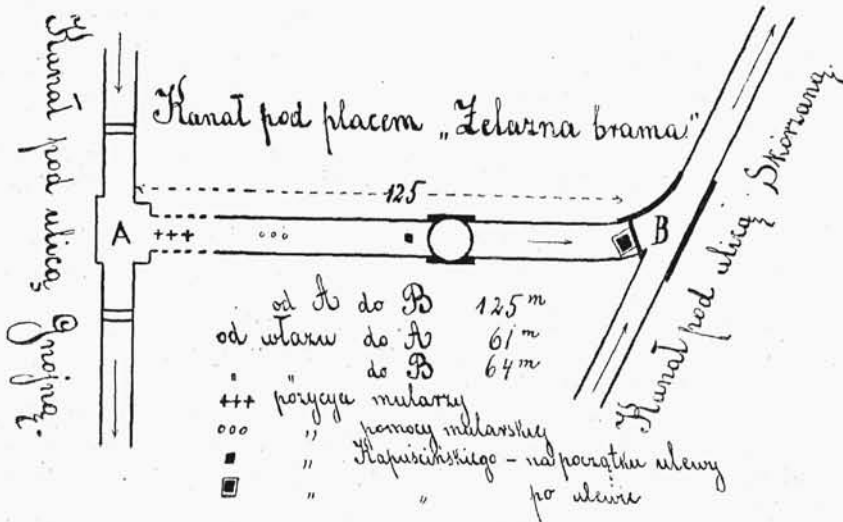 Kanał pod ulicą Gnojną.
Kanał pod placem „Żelazna brama"
125
A
+++
ooo
B
Kanał pod ulicą Skórzaną.
od A do B 125 m
od włazu do A 61 m
" " do B 64 m
+++ pozycya mularzy
ooo " pomocy mularskiej
■ " Kapuścińskiego – na początku ulewy
" " po ulewie